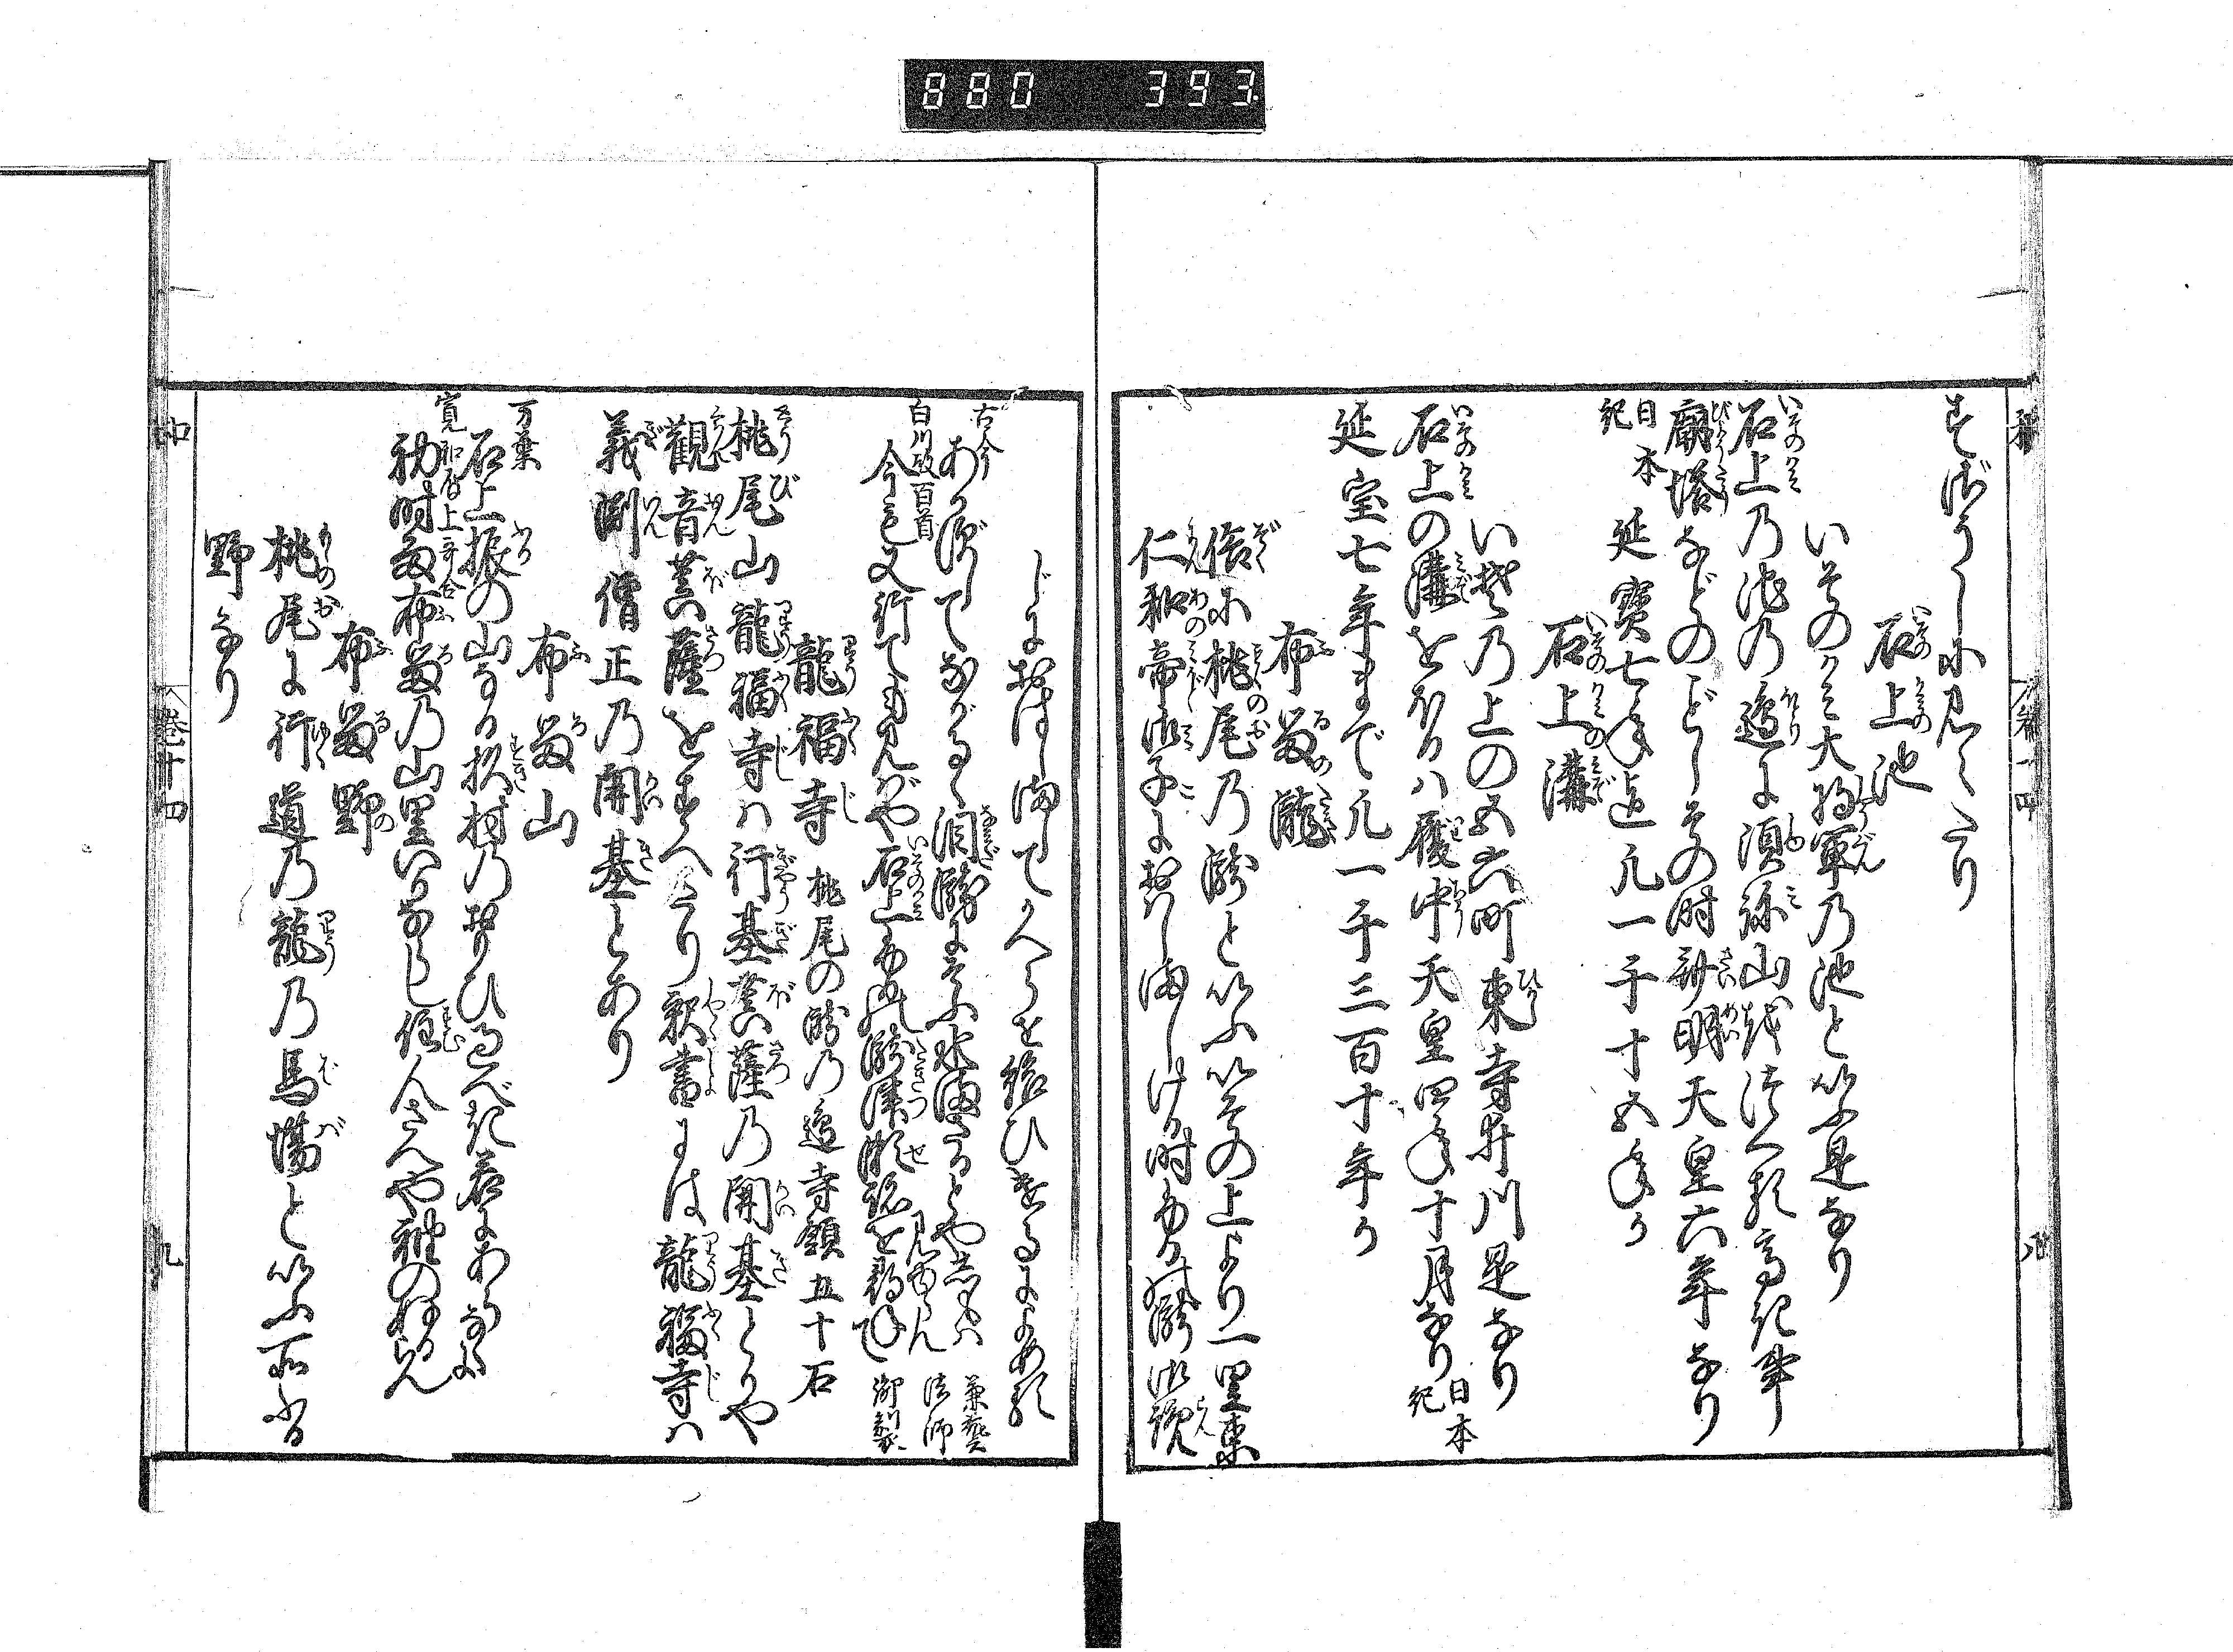 880 393
石上池
いその上大将軍乃池といふ是なり
石上乃池の邊に須弥山をつくる高き事
廟塔などのごとしその時齊明天皇六年なり
日本紀 延寶七年迄凡一千十五年か
石上溝
いその上の五六町東寺井川是なり
石上の溝をほりハ履中天皇四年十月なり 日本紀
延宝七年まで凡一千三百十年か
布留瀧
俗に桃尾乃瀧といふいその上より一里東
仁和帝御子におはしましける時布留瀧御覧
じにおはしましてかへらせ給ひけるによめる
古今 あかずしてながるゝ泪瀧にそふ水まさるとやしもハ見ゆらん 兼藝法師
白川殿百首 今も又行ても見ばや石上ふるの瀧津瀬跡を尋ねて 御製
龍福寺 桃尾の瀧乃邊寺領五十石
桃尾山龍福寺ハ行基菩薩乃開基とかや
観音菩薩をすへたり釈書には龍福寺ハ
義渕僧正乃開基とあり
布留山
万葉 石上振の山なる杉村乃おもひ過べき君にあらなくに
初時雨布留乃山里いかならし住人さへや袖のぬるらん
布留野
桃尾に行道乃龍乃馬場といふ所ふる
野なり
卷十四
九